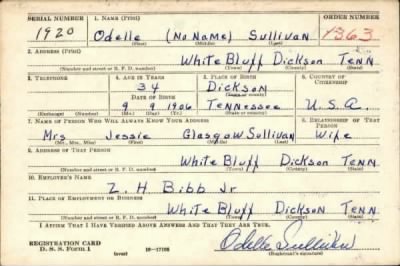 SERIAL NUMBER 1. NAME (Print) ORDER NUMBER
1920 Odelle (No Name) Sullivan 1363
(First) (Middle) (Last)
2. ADDRESS (Print)
White Bluff Dickson Tenn
(Number and street or R. F. D. number) (Town) (County) (State)
3. TELEPHONE 4. AGE IN YEARS 5. PLACE OF BIRTH 6. COUNTRY OF CITIZENSHIP
34 Dickson
(Town or county)
DATE OF BIRTH
9 9 1906 Tennessee U.S.A.
(Exchange) (Number) (Mo.) (Day) (Yr.) (State or country)
7. NAME OF PERSON WHO WILL ALWAYS KNOW YOUR ADDRESS 8. RELATIONSHIP OF THAT PERSON
Mrs Jessie Glasgow Sullivan Wife
(Mr., Mrs., Miss) (First) (Middle) (Last)
9. ADDRESS OF THAT PERSON
White Bluff Dickson Tenn
(Number and street or R. F. D. number) (Town) (County) (State)
10. EMPLOYER'S NAME
Z. H Bibb Jr
11. PLACE OF EMPLOYMENT OR BUSINESS
White Bluff Dickson Tenn
(Number and street or R. F. D. number) (Town) (County) (State)
I AFFIRM THAT I HAVE VERIFIED ABOVE ANSWERS AND THAT THEY ARE TRUE.
REGISTRATION CARD
D. S. S. Form 1 (over) 16—17105 Odelle Sullivan
(Registrant's signature)